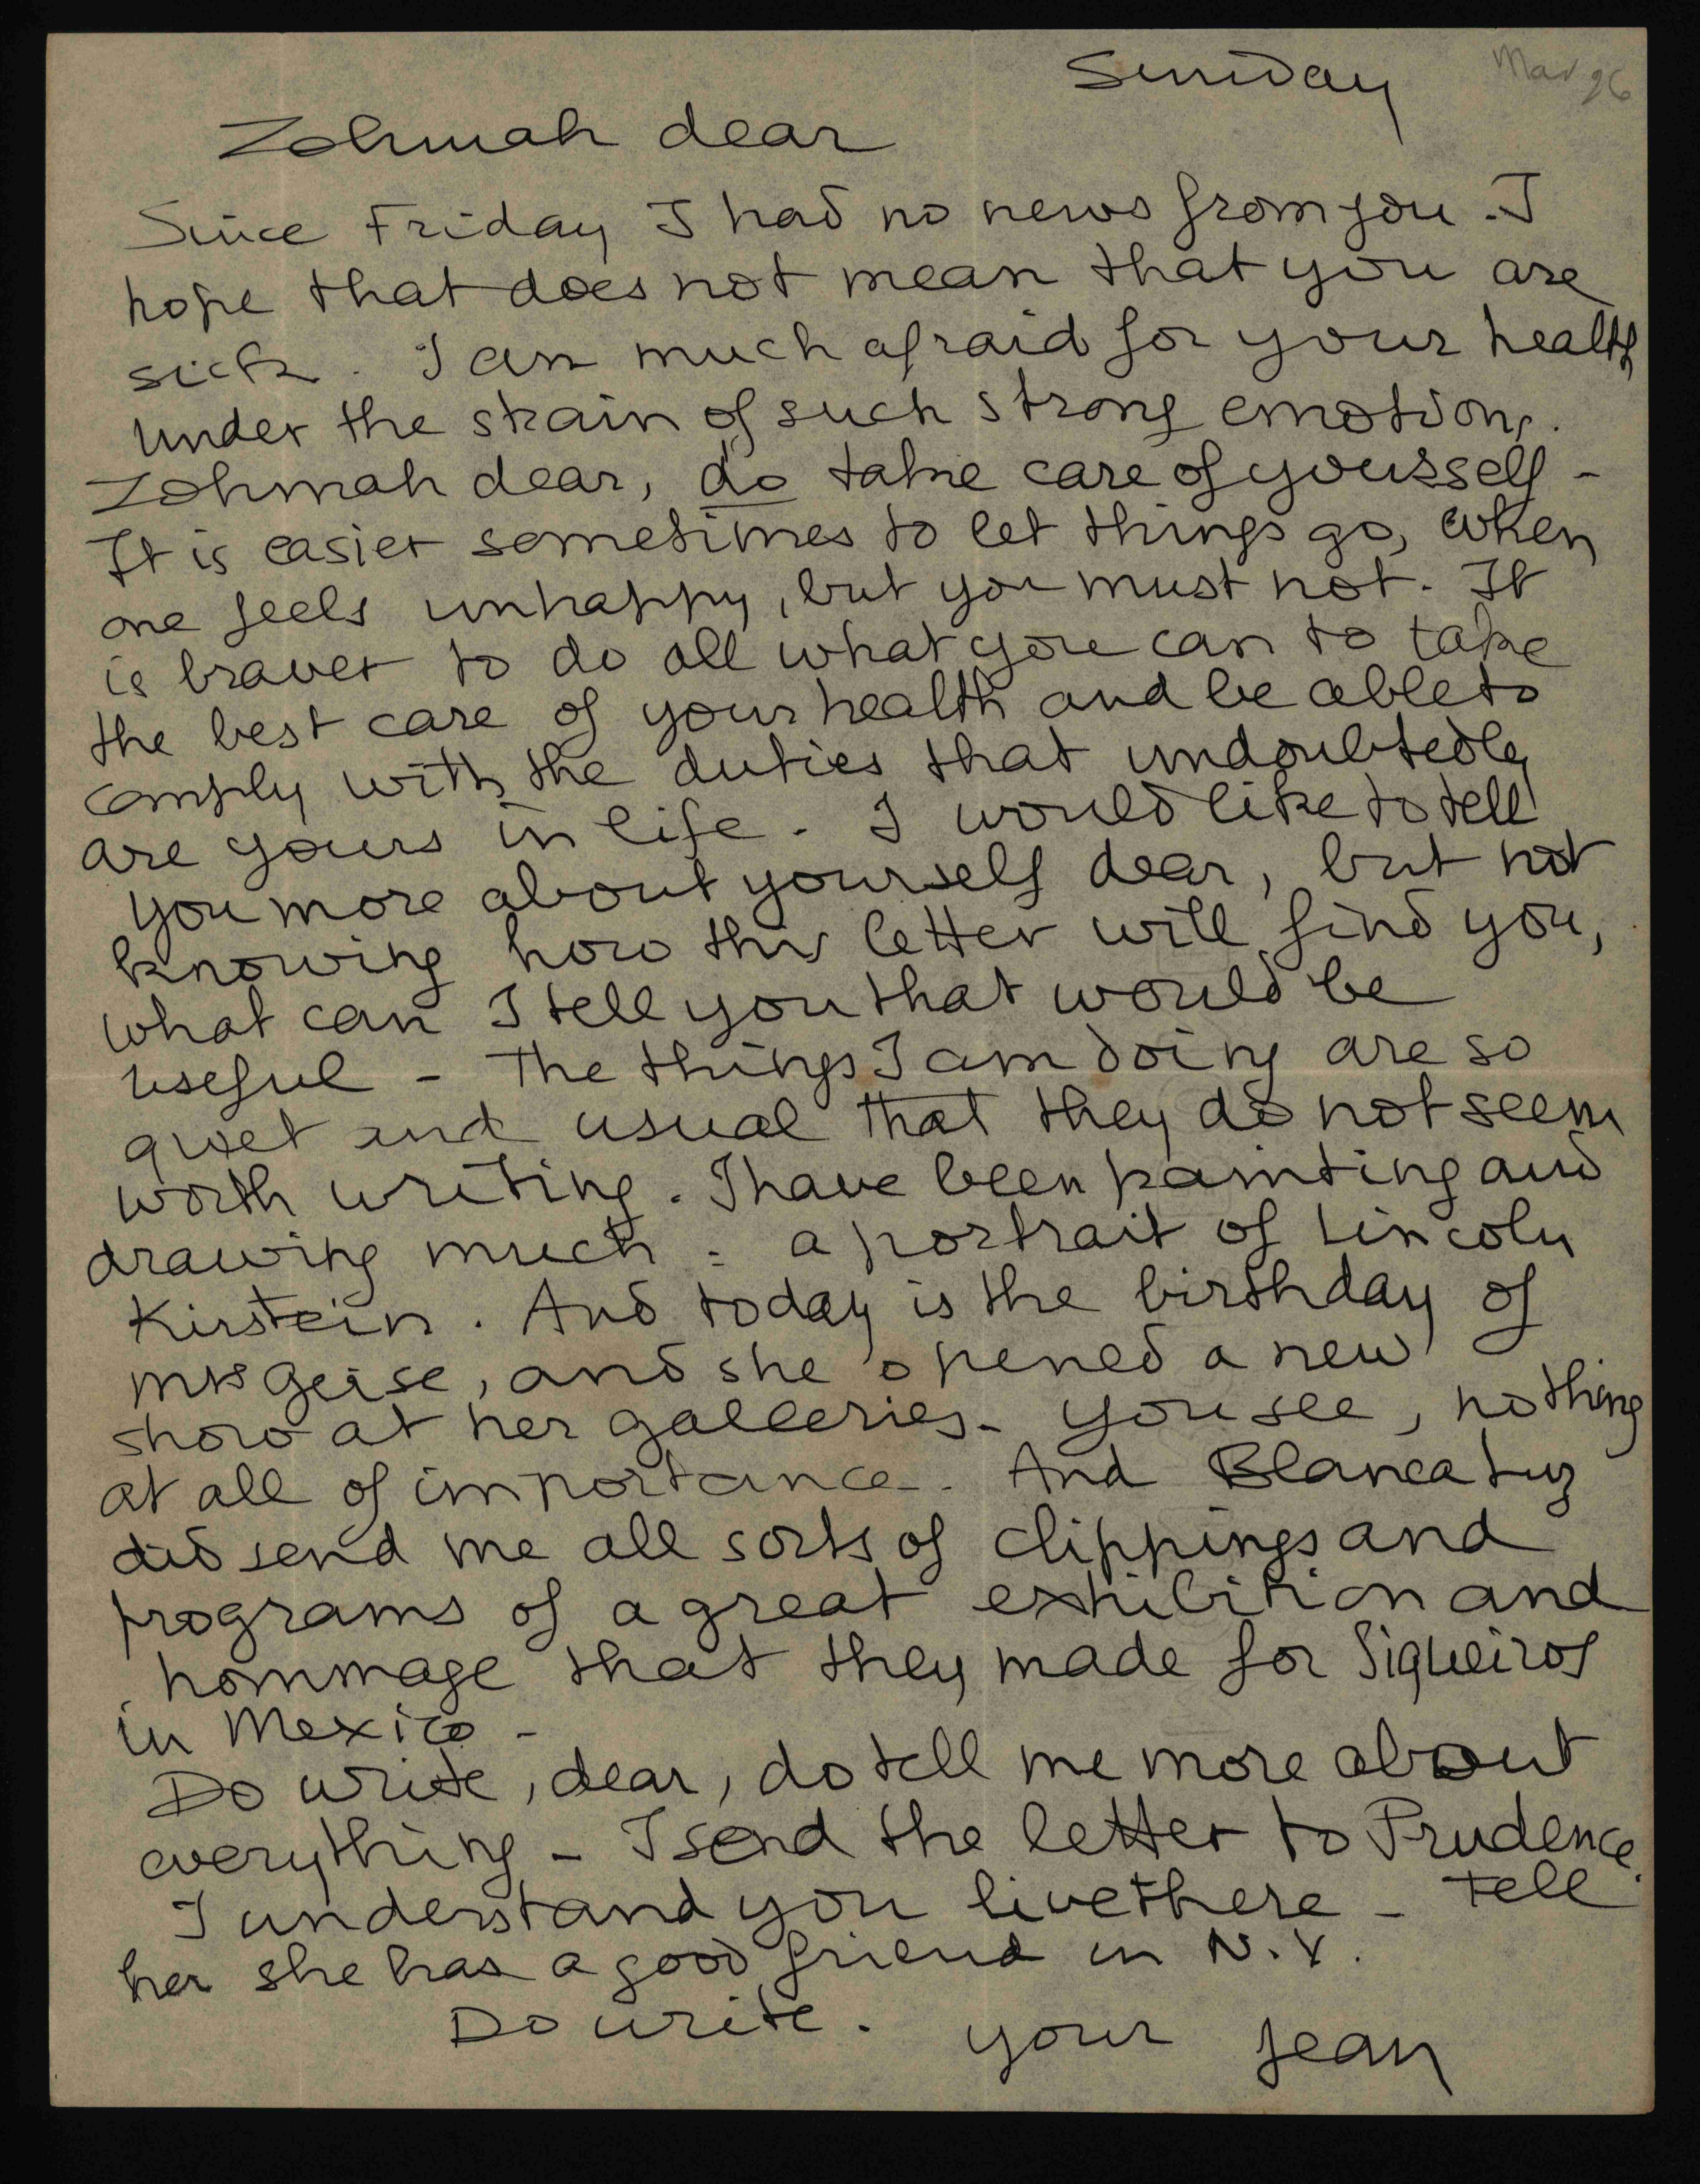 Sunday Mar 26
Zohmah dear
Since Friday I had no news from you. I
hope that does not mean that you are
sick. I am much afraid for your health
under the strain of such strong emotions.
Zohmah dear, do take care of yoursself -
It is easier sometimes to let things go, when
one feels unhappy, but you must not. It
is braver to do all what you can to take
the best care of your health and be able to
comply with the duties that undoubtedly
are yours in life. I would like to tell
you more about yourself dear, but not
knowing how this letter will find you,
what can I tell you that would be
useful - The things I am doing are so
quiet and usual that they do not seem
worth writing. I have been painting and
drawing much: a portrait of Lincoln
Kirstein. And today is the birthday of
Mrs Geise, and she opened a new
show at her galleries - you see, nothing
at all of importance. And Blanca Luz
did send me all sorts of clippings and
programs of a great exhibition and
hommage that they made for Siqueiros
in Mexico -
Do write, dear, do tell me more about
everything - I send the letter to Prudence.
I understand you live there - Tell
her she has a good friend in N.Y.
Do write. your Jean